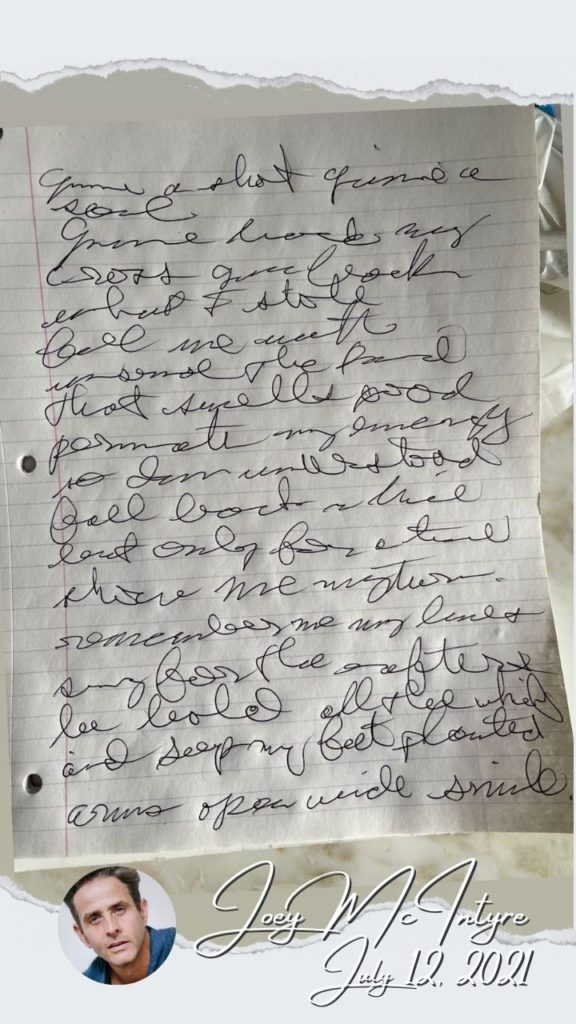 gimme a shot gimme a
soul
Gimme back my
cross give back
what I stole
fall me with
the
that smells good
permeate my energy
so I'm understood
fall back a while
but only for a time
show me my turn.
remember me my lines
sing for the rafters
be bold all the while
and keep my feet planted
arms open wide smile.
Joey McIntyre
July 12, 2021